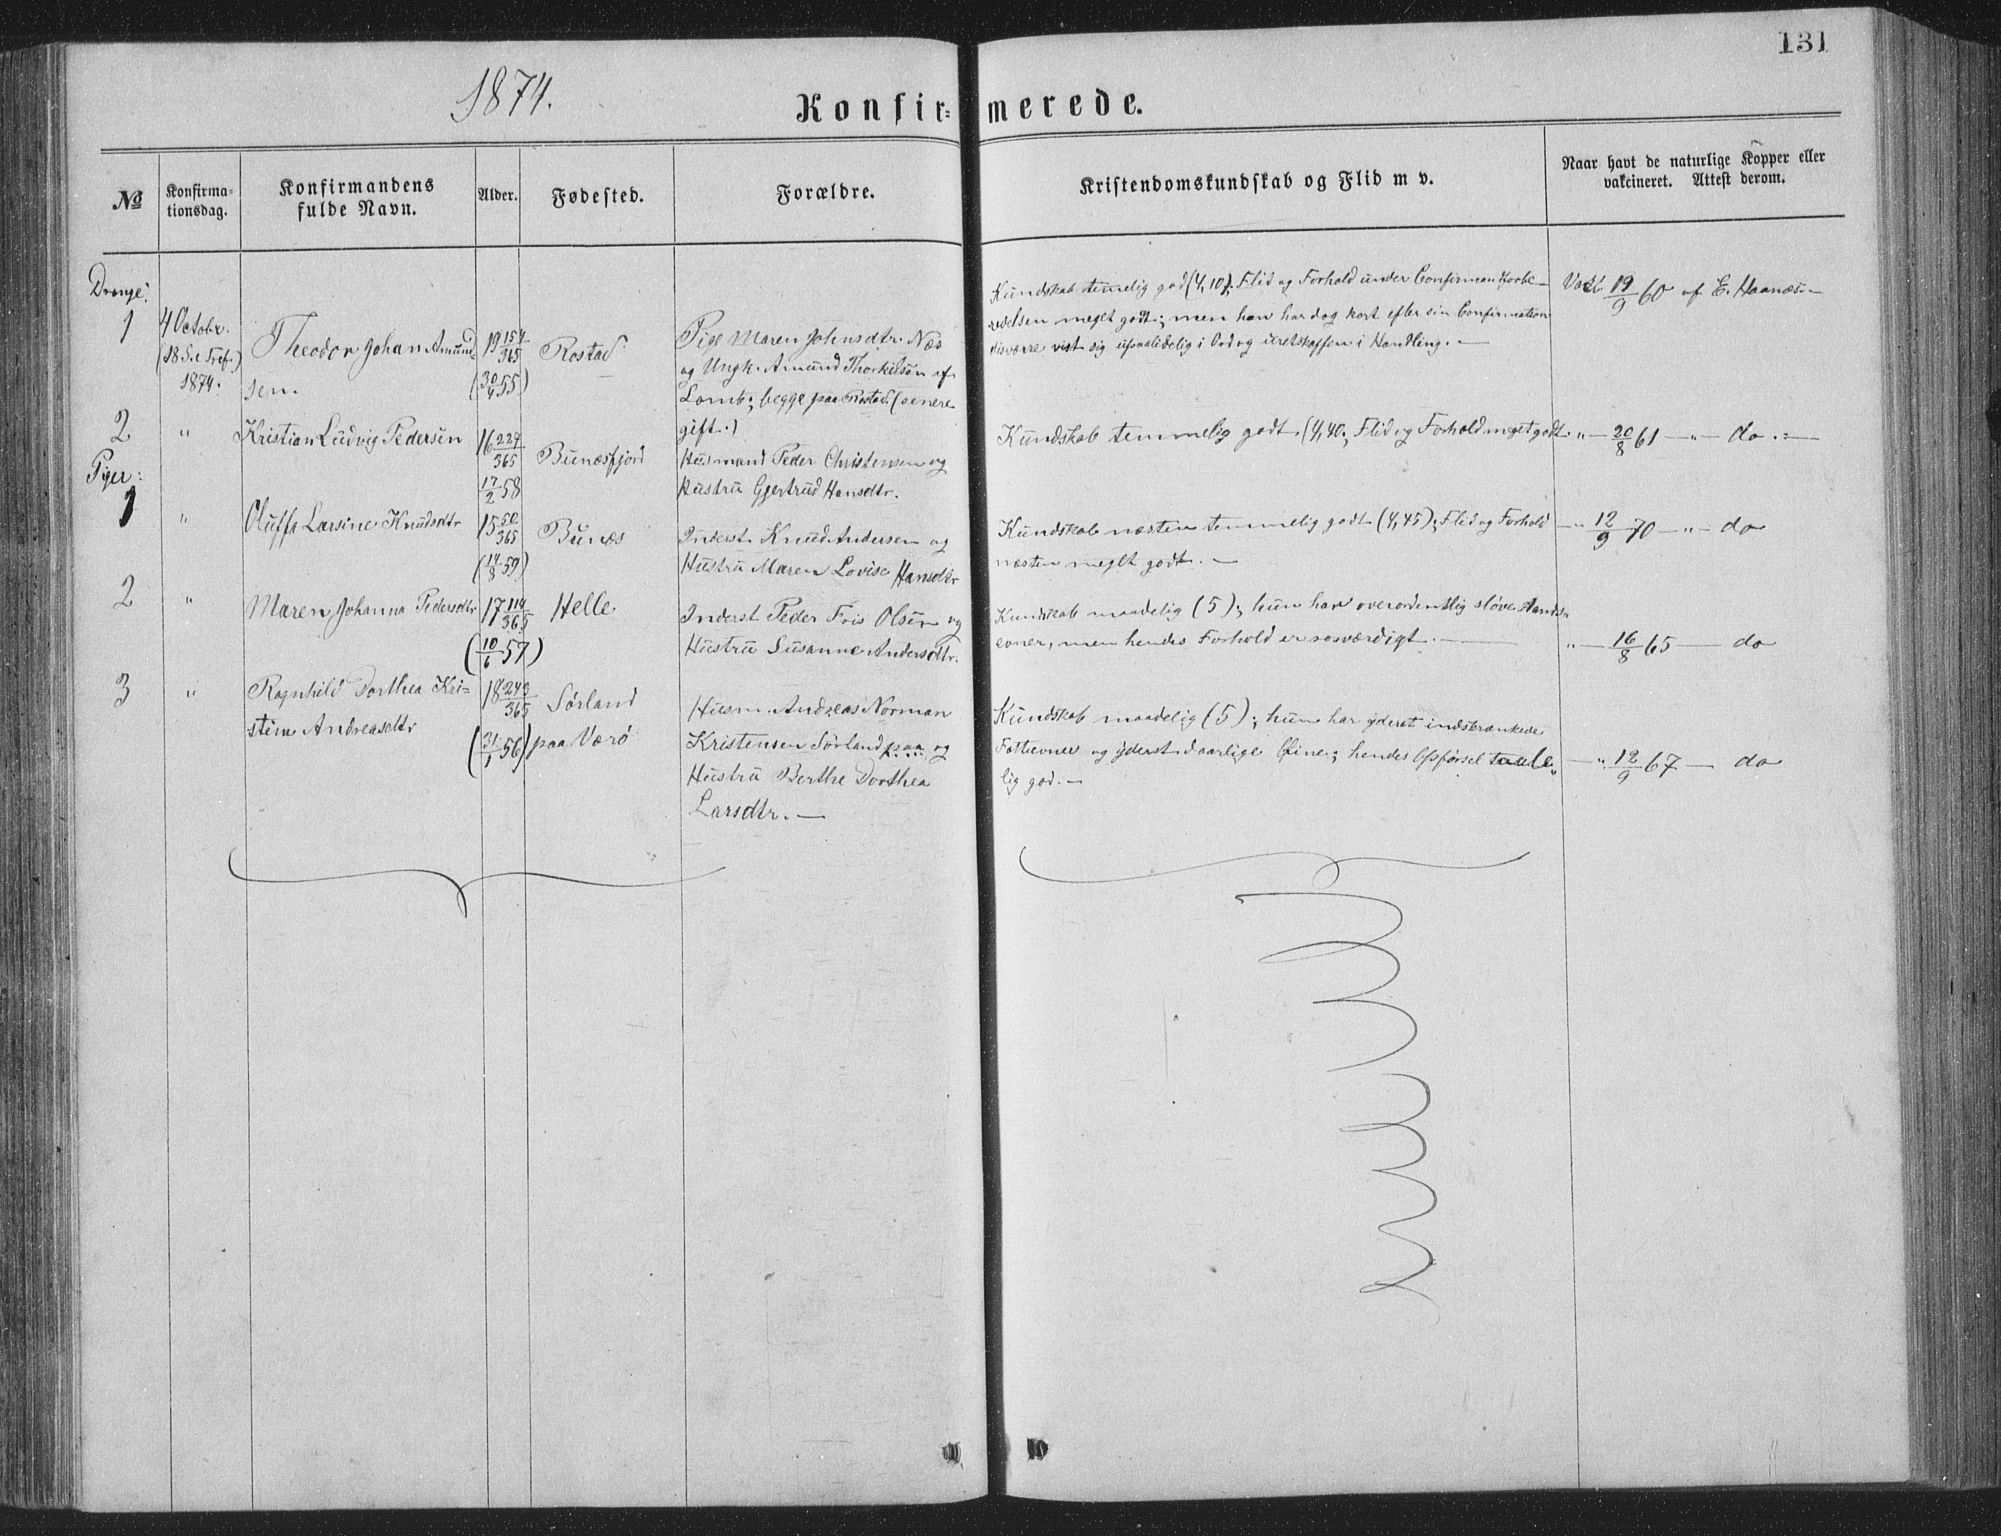 131
1874.
Konfir= merede.
№
Konfirma-
tionsdag.
Konfirmandens
fulde Navn.
Alder.
Fødested.
Forældre.
Kristendomskundskab og Flid m v.
Naar havt de naturlige Kopper eller
vakcineret. Attest derom.
Drenge:
1
4 Octobr.
(18 S. e Tref.)
1874.
Theodor Johan Amund
sen.
19 154/365
(30/4 55)
Rostad
Pige Maren Johnsdtr. Næs
og Ungk. Amund Thorkilsøn af
Lomb; begge paa Rostad. (senere
gift.)
Kundskab temmelig god (4,10); Flid og Forhold under Confirmandforbe-
redelsen meget godt; men han har dog kort efter sin Confirmation
disværre vist sig upaalidelig i Ord og uretskaffen i Handling. —
Vacc. 19/9 60 af E. Haanæs. —
2
"
Kristian Ludvig Pedersen
16 229/365
17/2 58
Bunæsfjord
Husmand Peder Christensen og
Hustru Gjertrud Hansdtr.
Kundskab temmelig godt. (4,40; Flid og Forhold meget godt.
" — 20/8 61 — " — do . —
Piger:
1
"
Oluffa Larsine Knudsdtr
15 50/365
(14/8 59)
Bunæs
Inderst Knud Andersen og
Hustru Maren Lovise Hansdtr
Kundskab næsten temmelig godt (4,45); Flid og Forhold
næsten meget godt. —
— " 12/9 70 — " — do
2
"
Maren Johanna Pedersdtr
17 114/365
(10/6 57)
Helle
Inderst Peder Friis Olsen og
Hustru Susanne Andersdtr.
Kundskab maadelig (5); hun har overordentlig sløve Aands-
evner, men hendes Forhold er rosværdigt. —
" — 16/8 65 — do
3
"
Ragnhild Dorthea Kri-
stine Andreasdtr
18 243/365
(31/1 56)
Sørland
paa Værø
Husm. Andreas Norman
Kristensen Sørland paa og
Hustru Berthe Dorthea
Larsdtr. —
Kundskab maadelig (5); hun har yderst indskrænkede
Fatteevner og yderst daarlige Øine; hendes Opførsel taale-
lig god. —
— " 12/9 67 — do